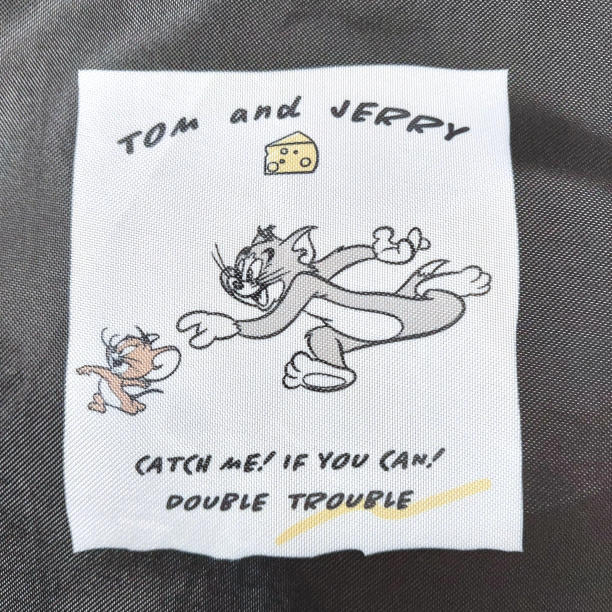 TOM and JERRY
CATCH ME! IF YOU CAN!
DOUBLE TROUBLE